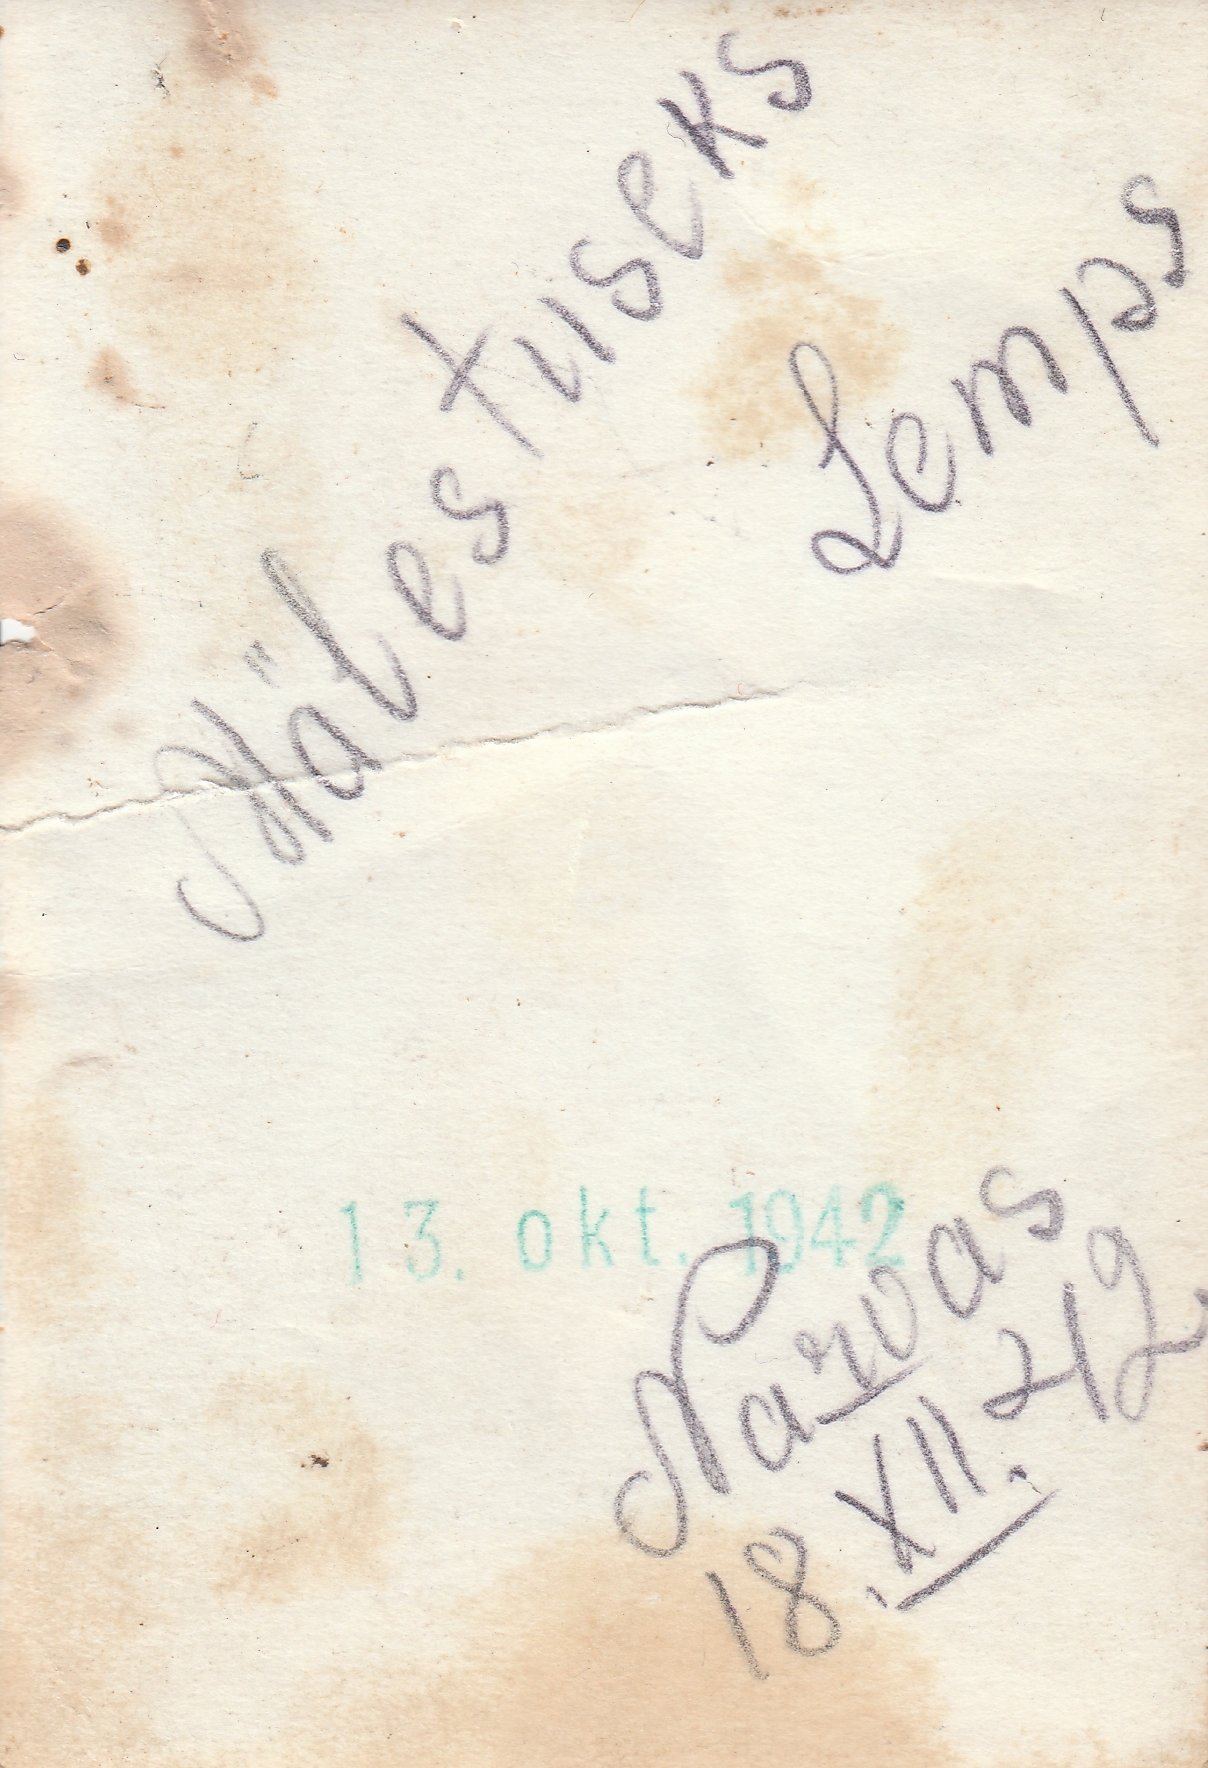 Mälestuseks
Lemps
13. okt. 1942
Narvas
18. XII. 42